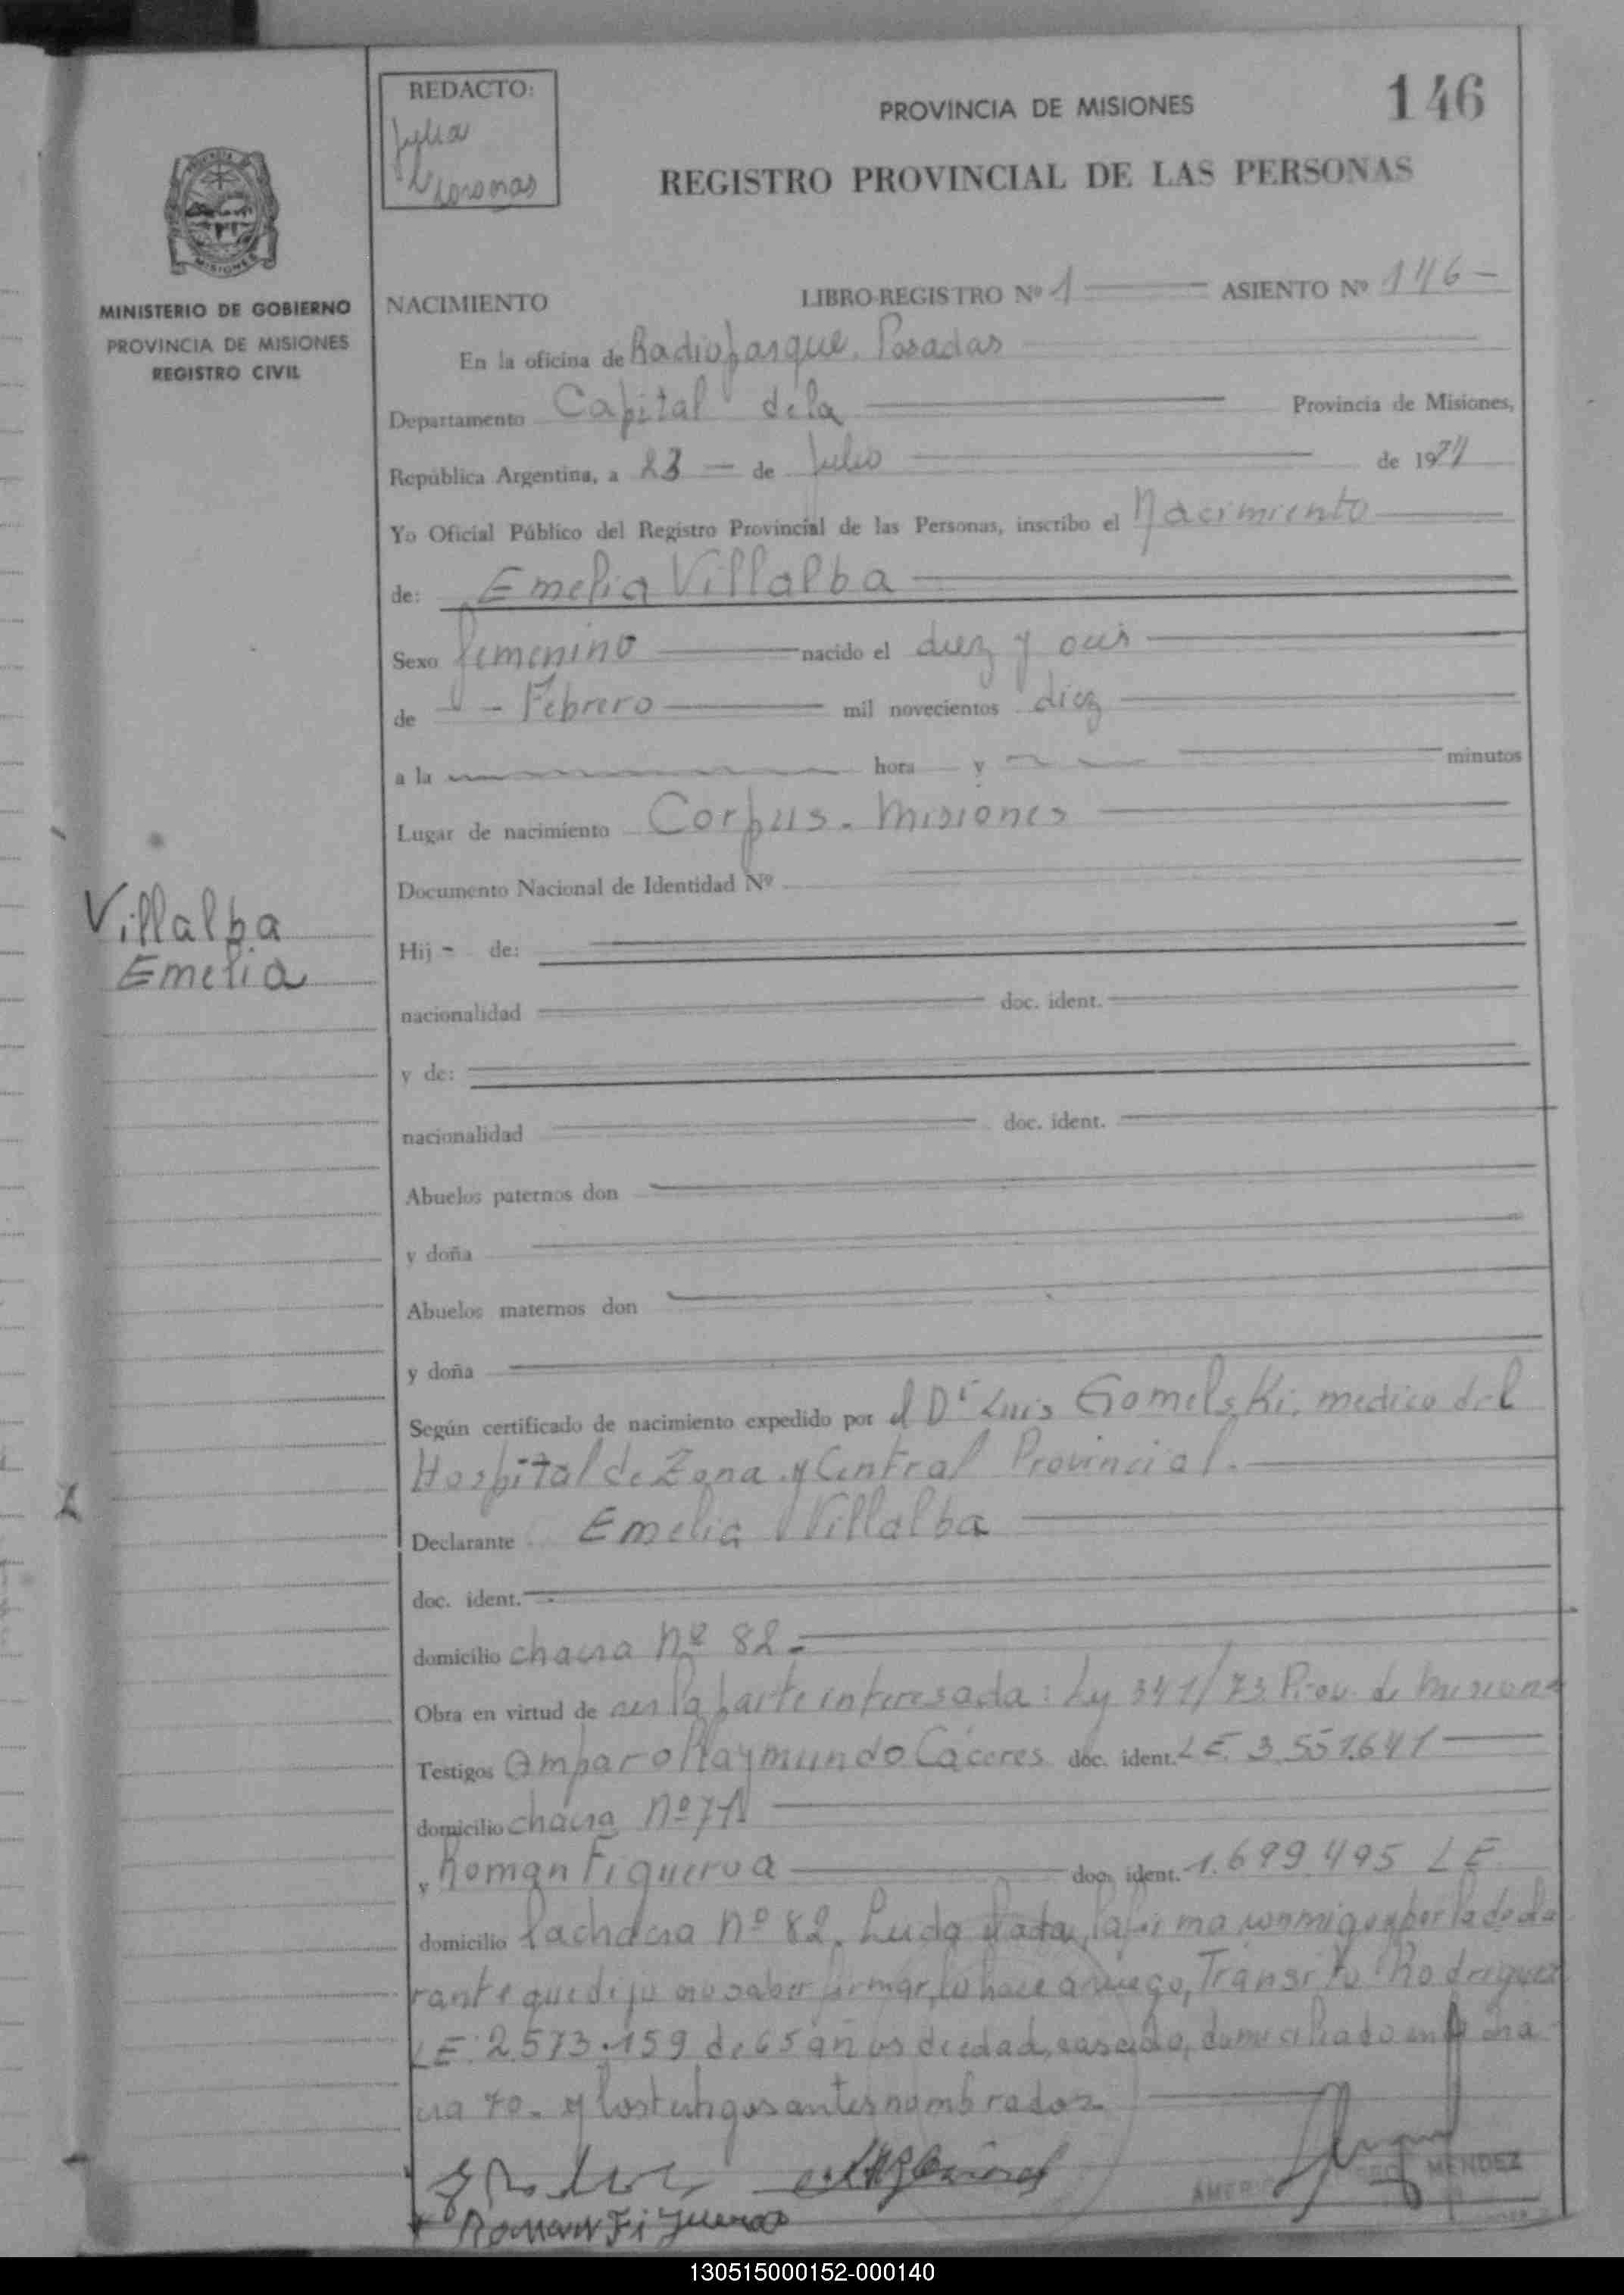 146
REDACTO:
Julia
PROVINCIA DE MISIONES
REGISTRO PROVINCIAL DE LAS PERSONAS
MISIONES
MINISTERIO DE GOBIERNO
PROVINCIA DE MISIONES
REGISTRO CIVIL
NACIMIENTO LIBRO-REGISTRO Nº 1 ASIENTO Nº 146-
En la oficina de Radioparque. Posadas
Departamento Capital dela Provincia de Misiones,
República Argentina, a 23 - de Julio de 1974
Yo Oficial Público del Registro Provincial de las Personas, inscribo el Nacimiento
de: Emelia Villalba
Sexo femenino nacido el diez y
de - Febrero mil novecientos diez
a la hora y minutos
Lugar de nacimiento Corpus. Misiones
Documento Nacional de Identidad Nº
Villalba
Emelia
Hij - de:
nacionalidad doc. ident.
y de:
nacionalidad doc. ident.
Abuelos paternos don
y doña
Abuelos maternos don
y doña
Según certificado de nacimiento expedido por el Dr Luis Gomelski. medico del
Hospital de Zona y Central Provincial.
Declarante Emelia Villalba
doc. ident.
domicilio chacra Nº 82.
Obra en virtud de ser la parte interesada: Ley 341/73 Prov. de Misiones
Testigos Amparo Raymundo Cáceres doc. ident. LE. 3.551.641
domicilio chacra Nº 71
y Roman Figueroa doc. ident. 1.699.495 LE
domicilio la chacra Nº 82. Leida el acta, la firma conmigo y por la decla
rante que dijo no saber firmar, lo hace a ruego, Tránsito Rodriguez
LE: 2.573.159 de 65 años de edad, casado, domiciliado en la cha
cra 70. y los testigos antes nombrados.
Roman Figueroa
MENDEZ
130515000152-000140